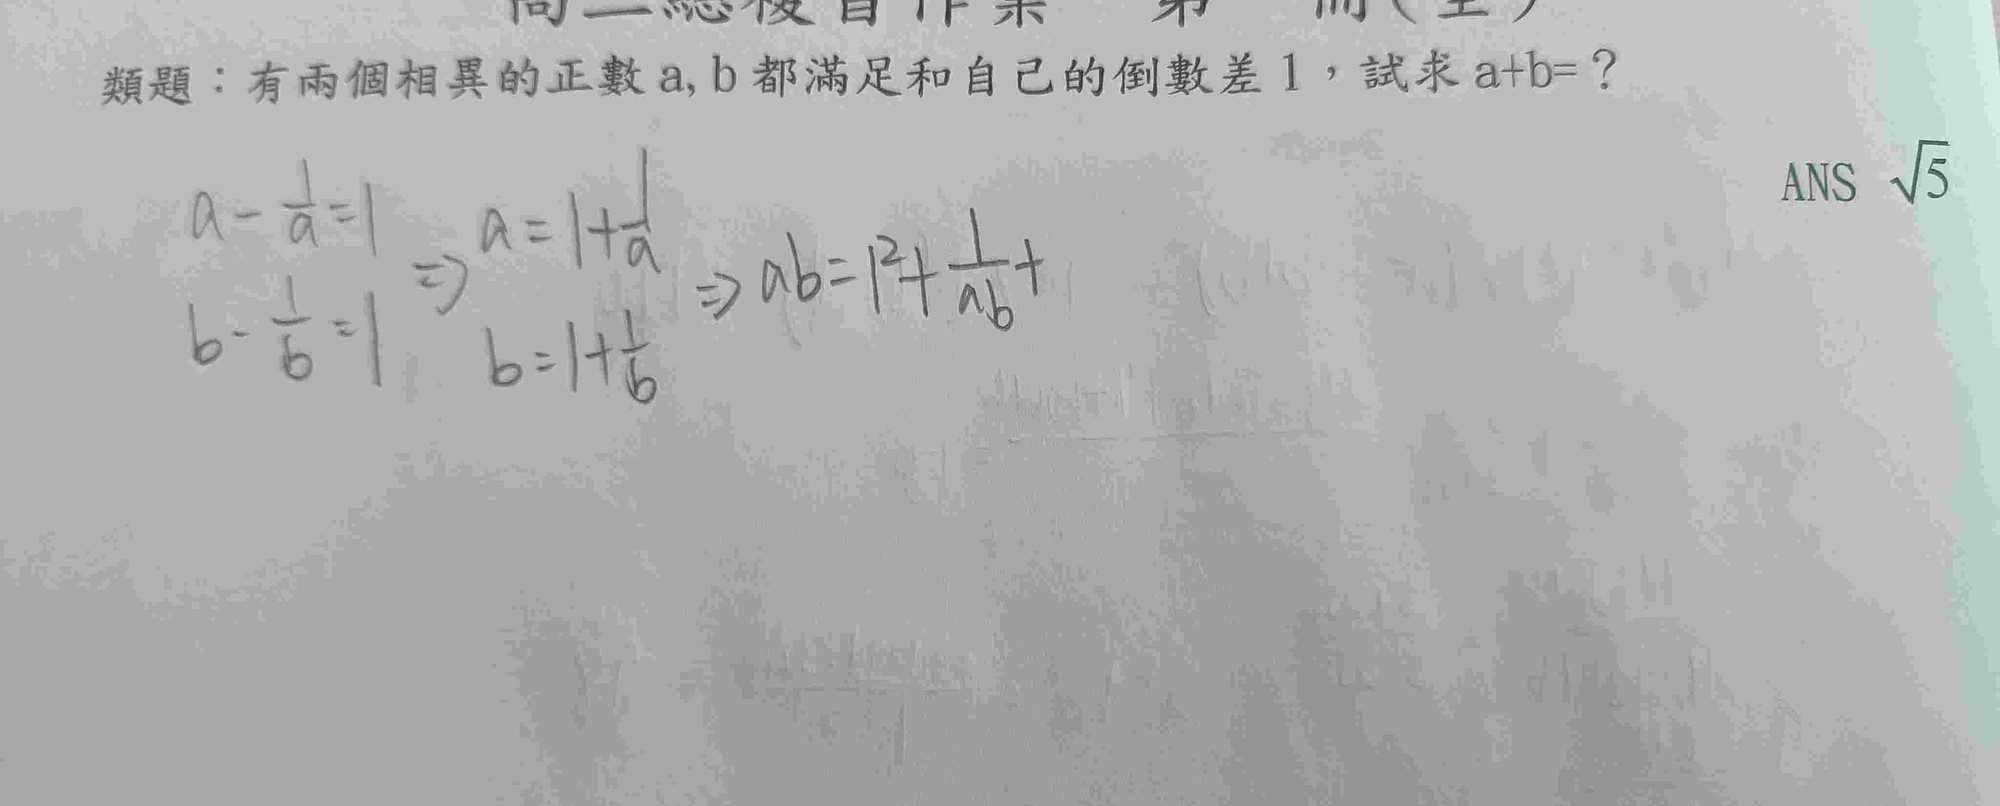 類題：有兩個相異的正數 a, b 都滿足和自己的倒數差 1，試求 a+b=？
ANS √5
a - 1/a = 1 ⇒ a = 1 + 1/a ⇒ ab = 1² + 1/ab +
b - 1/b = 1 b = 1 + 1/b